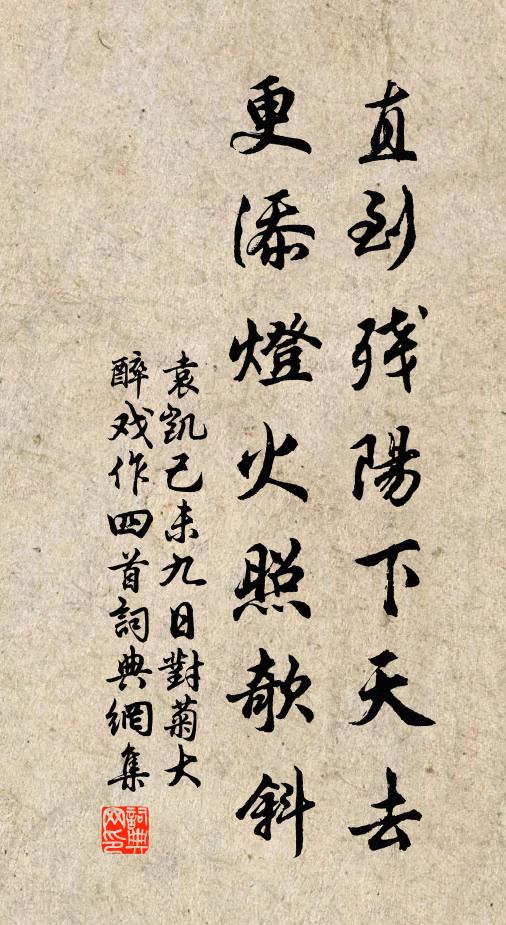 直到残陽下天去
更添燈火照欹斜
袁凱己未九日對菊大
醉戏作四首詞典網集
詞典
网印